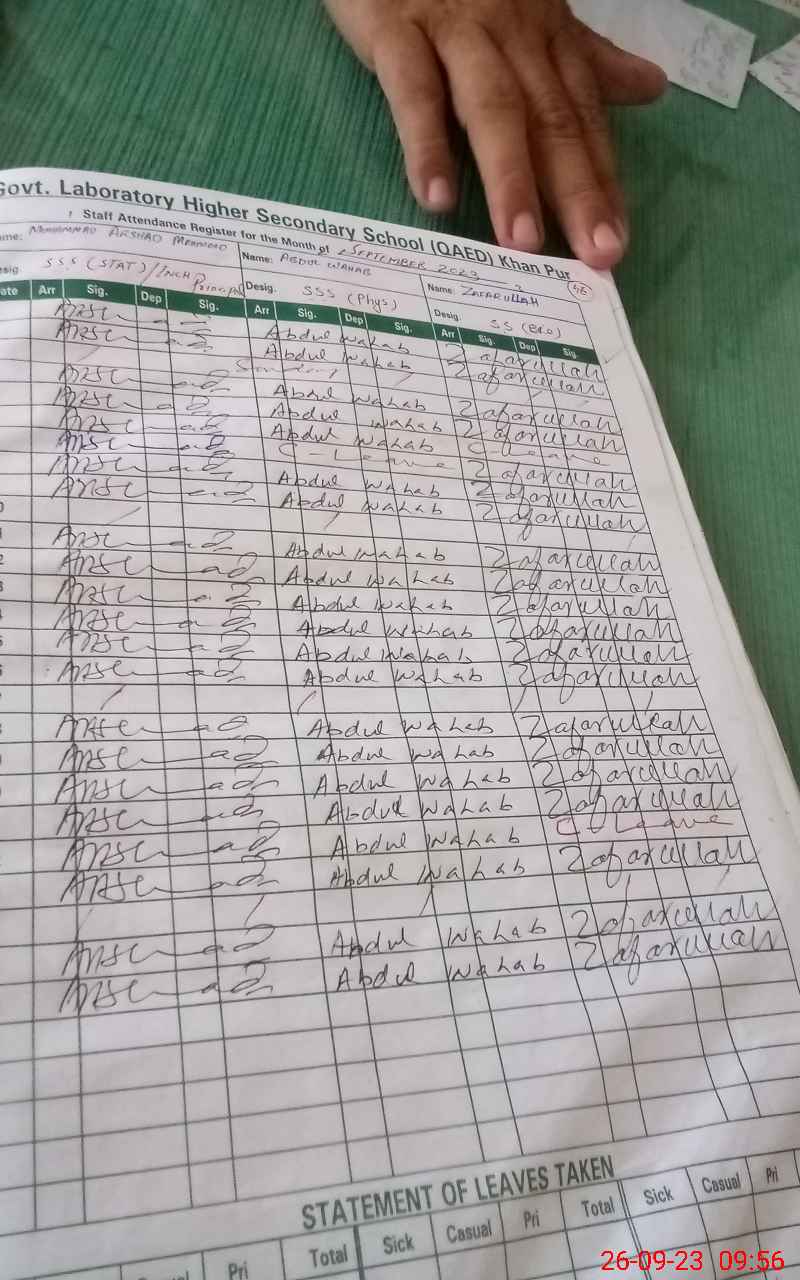 Govt. Laboratory Higher Secondary School (QAED) Khan Pur
Staff Attendance Register for the Month of SEPTEMBER 2023
ame: MUHAMMAD ARSHAD MEHMOOD Name: ABDUL WAHAB Name: ZAFARULLAH 46
esig SSS (STAT)/INCH Principal Desig. SSS (Phys) Desig. SS (Bio)
ate Arr Sig. Dep Sig. Arr Sig. Dep Sig. Arr Sig. Dep Sig.
Abdul Wahab Zafarullah
Abdul Wahab Zafarullah
Sunday
Abdul Wahab Zafarullah
Abdul Wahab Zafarullah
Abdul Wahab C-Leave
C-Leave Zafarullah
Abdul Wahab Zafarullah
Abdul Wahab Zafarullah
0
1 Abdul Wahab Zafarullah
2 Abdul Wahab Zafarullah
3 Abdul Wahab Zafarullah
4 Abdul Wahab Zafarullah
5 Abdul Wahab Zafarullah
6 Abdul Wahab Zafarullah
7
8 Abdul Wahab Zafarullah
9 Abdul Wahab Zafarullah
Abdul Wahab Zafarullah
Abdul Wahab Zafarullah
Abdul Wahab C Leave
Abdul Wahab Zafarullah
Abdul Wahab Zafarullah
Abdul Wahab Zafarullah
STATEMENT OF LEAVES TAKEN
sual Pri Total Sick Casual Pri Total Sick Casual Pri
26-09-23 09:56